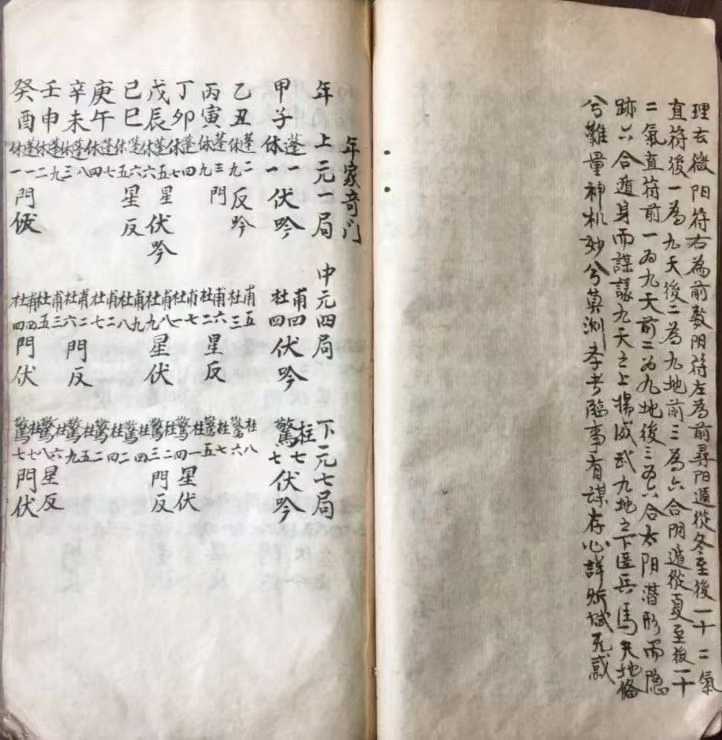 理玄微阳符右為前数阴符左為前尋阳遁從冬至後一十二氣
直符後一為九天後二為九地前三為六合阴遁從夏至後一十
二氣直符前一為九天前二為九地後三為六合太阴潜形而隐
跡六合遁身而謀議九天之上揚威武九地之下匿兵馬天地條
兮難量神机妙兮莫測李考臨事有謀存心詳斯斌无惑
年家奇门
年 上元一局 中元四局 下元七局
甲子 蓬一休一伏吟 甫四杜四伏吟 柱七驚七伏吟
乙丑 蓬九休二反吟 甫五杜三 柱八驚六
丙寅 蓬三休九門 甫六杜二星反 柱七驚五
丁卯 蓬四休七 甫七杜一 柱一驚四星伏
戊辰 蓬五休六星伏吟 甫八杜九星伏 柱二驚三門反
己巳 蓬六休五星反 甫九杜八 柱四驚二
庚午 蓬七休四 甫一杜七 柱四驚二
辛未 蓬八休三 甫二杜六門反 柱五驚九
壬申 蓬九休二 甫三杜五 柱六驚八星反
癸酉 蓬一休一門伏 甫四杜四門伏 柱七驚七門伏